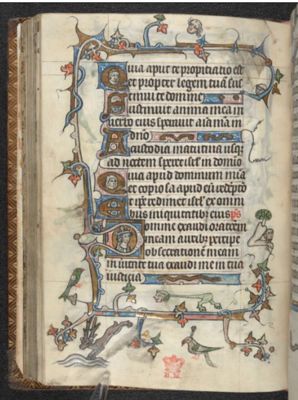 Quia aput te propitiatio est
et propter legem tuã sus
tinui te domine
Sustinuit anima mea in
uerbo eius sperauit aĩa mẽa in
dño
A custodia matutina usqz
ad noctem speret isrl in domino
Quia apud dominum mĩa
et copiosa apud eũ redẽptõ
Et ipse redimet isrl ex omni
bus iniquitatibz eius ps
Domine exaudi orationẽ
meam auribz percipe
obsecrationẽ meam
in ueritate tua exaudi me in tua
iusticia